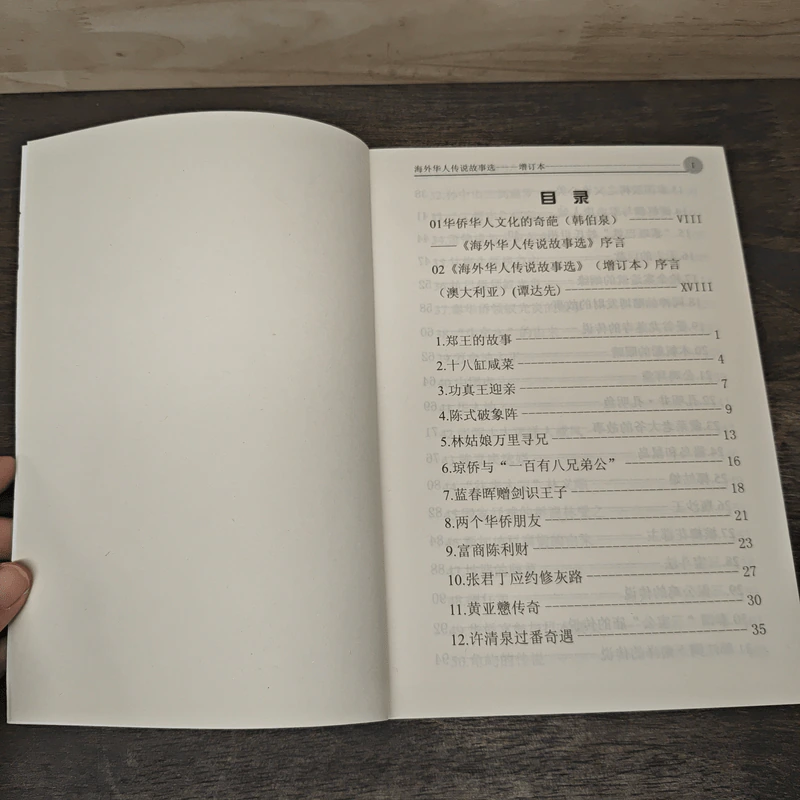 海外华人传说故事选——增订本 1
目 录
01华侨华人文化的奇葩（韩伯泉） VIII
——《海外华人传说故事选》序言
02《海外华人传说故事选》（增订本）序言
（澳大利亚）(谭达先) XVIII
1.郑王的故事 1
2.十八缸咸菜 4
3.功真王迎亲 7
4.陈式破象阵 9
5.林姑娘万里寻兄 13
6.琼侨与“一百有八兄弟公” 16
7.蓝春晖赠剑识王子 18
8.两个华侨朋友 21
9.富商陈利财 23
10.张君丁应约修灰路 27
11.黄亚戆传奇 30
12.许清泉过番奇遇 35